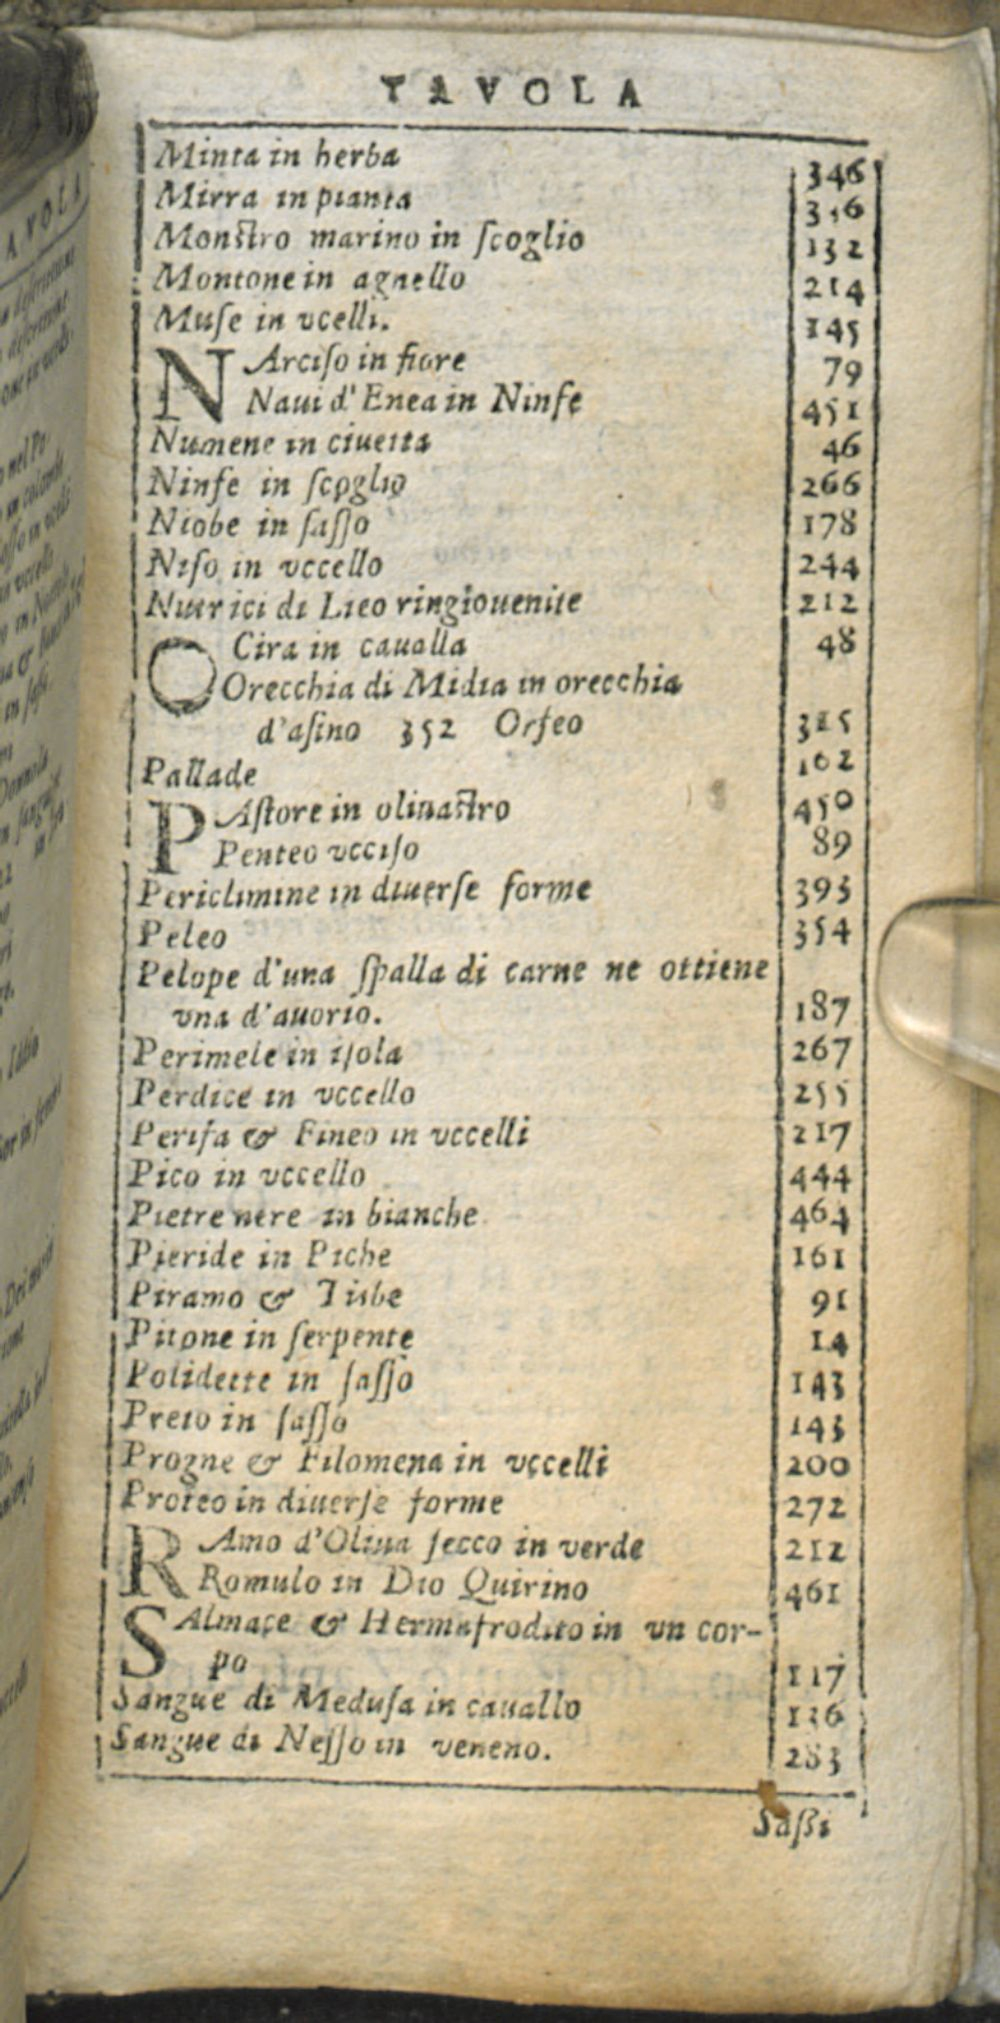 TAVOLA
Minta in herba 346
Mirra in pianta
Monſtro marino in ſcoglio 132
Montone in agnello 214
Muſe in vcelli. 145
NArciſo in fiore 79
Naui d'Enea in Ninfe 451
Numene in ciuetta 46
Ninfe in ſcoglio 266
Niobe in ſaſſo 178
Niſo in vccello 244
Nutrici di Lieo ringiouenite 212
OCira in caualla 48
Orecchia di Midia in orecchia
d'aſino 352 Orfeo 315
Pallade 102
PAſtore in oliuaſtro 450
Penteo vcciſo 89
Periclimine in diuerſe forme 393
Peleo 354
Pelope d'una ſpalla di carne ne ottiene
vna d'auorio. 187
Perimele in iſola 267
Perdice in vccello 255
Perifa & Fineo in vccelli 217
Pico in vccello 444
Pietre nere in bianche 464
Pieride in Piche 161
Piramo & Tisbe 91
Pitone in ſerpente 14
Polidette in ſaſſo 143
Preto in ſaſſo 143
Progne & Filomena in vccelli 200
Proteo in diuerſe forme 272
RAmo d'Oliua ſecco in verde 212
Romulo in Dio Quirino 461
SAlmace & Hermafrodito in vn cor-
po 117
Sangue di Meduſa in cauallo 136
Sangue di Neſſo in veneno. 283
Saßi